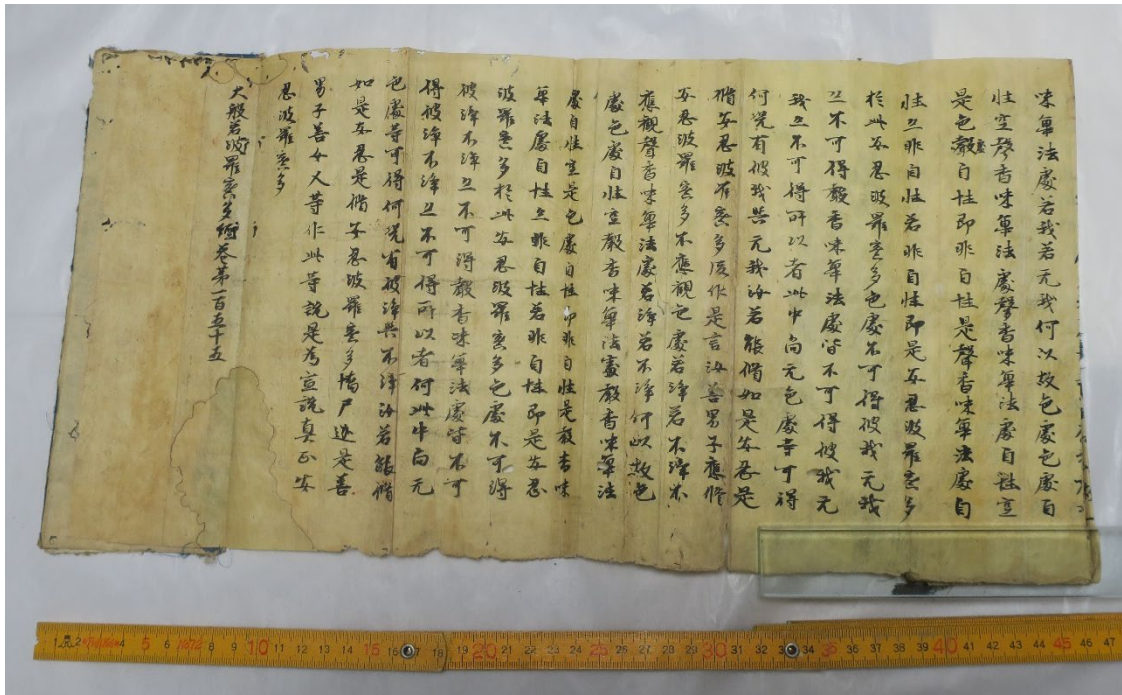 味觸法處若我若无我何以故色處色處自
性空聲香味觸法處聲香味觸法處自性空
是色處自性即非自性是聲香味觸法處自
性亦非自性若非自性即是安忍波羅蜜多
於此安忍波羅蜜多色處不可得彼我无我
亦不可得聲香味觸法處皆不可得彼我无
我亦不可得所以者此中尚无色處等可得
何況有彼我與无我汝若能脩如是安忍是
脩安忍波羅蜜多復作是言汝善男子應脩
安忍波羅蜜多不應觀色處若淨若不淨不
應觀聲香味觸法處若淨若不淨何以故色
處色處自性空聲香味觸法處聲香味觸法
處自性空是色處自性即非自性是聲香味
觸法處自性亦非自性若非自性即是安忍
波羅蜜多於此安忍波羅蜜多色處不可得
彼淨不淨亦不可得聲香味觸法處皆不可
得彼淨不淨亦不可得所以者何此中尚无
色處等可得何況有彼淨與不淨汝若能脩
如是安忍是脩安忍波羅蜜多憍尸迦是善
男子善女人等作此等說是為宣說真正安
忍波羅蜜多
大般若波羅蜜多經卷第一百五十五
1 2 4 5 6 8 9 10 11 12 13 14 15 16 17 18 19 20 21 22 23 24 25 26 27 28 29 30 31 32 33 34 35 36 37 38 39 40 41 42 43 44 45 46 47